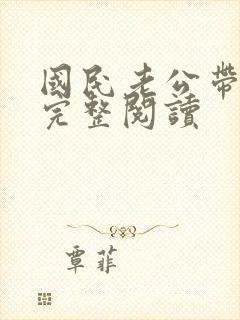 國民老公帶
完整閱讀
覃菲